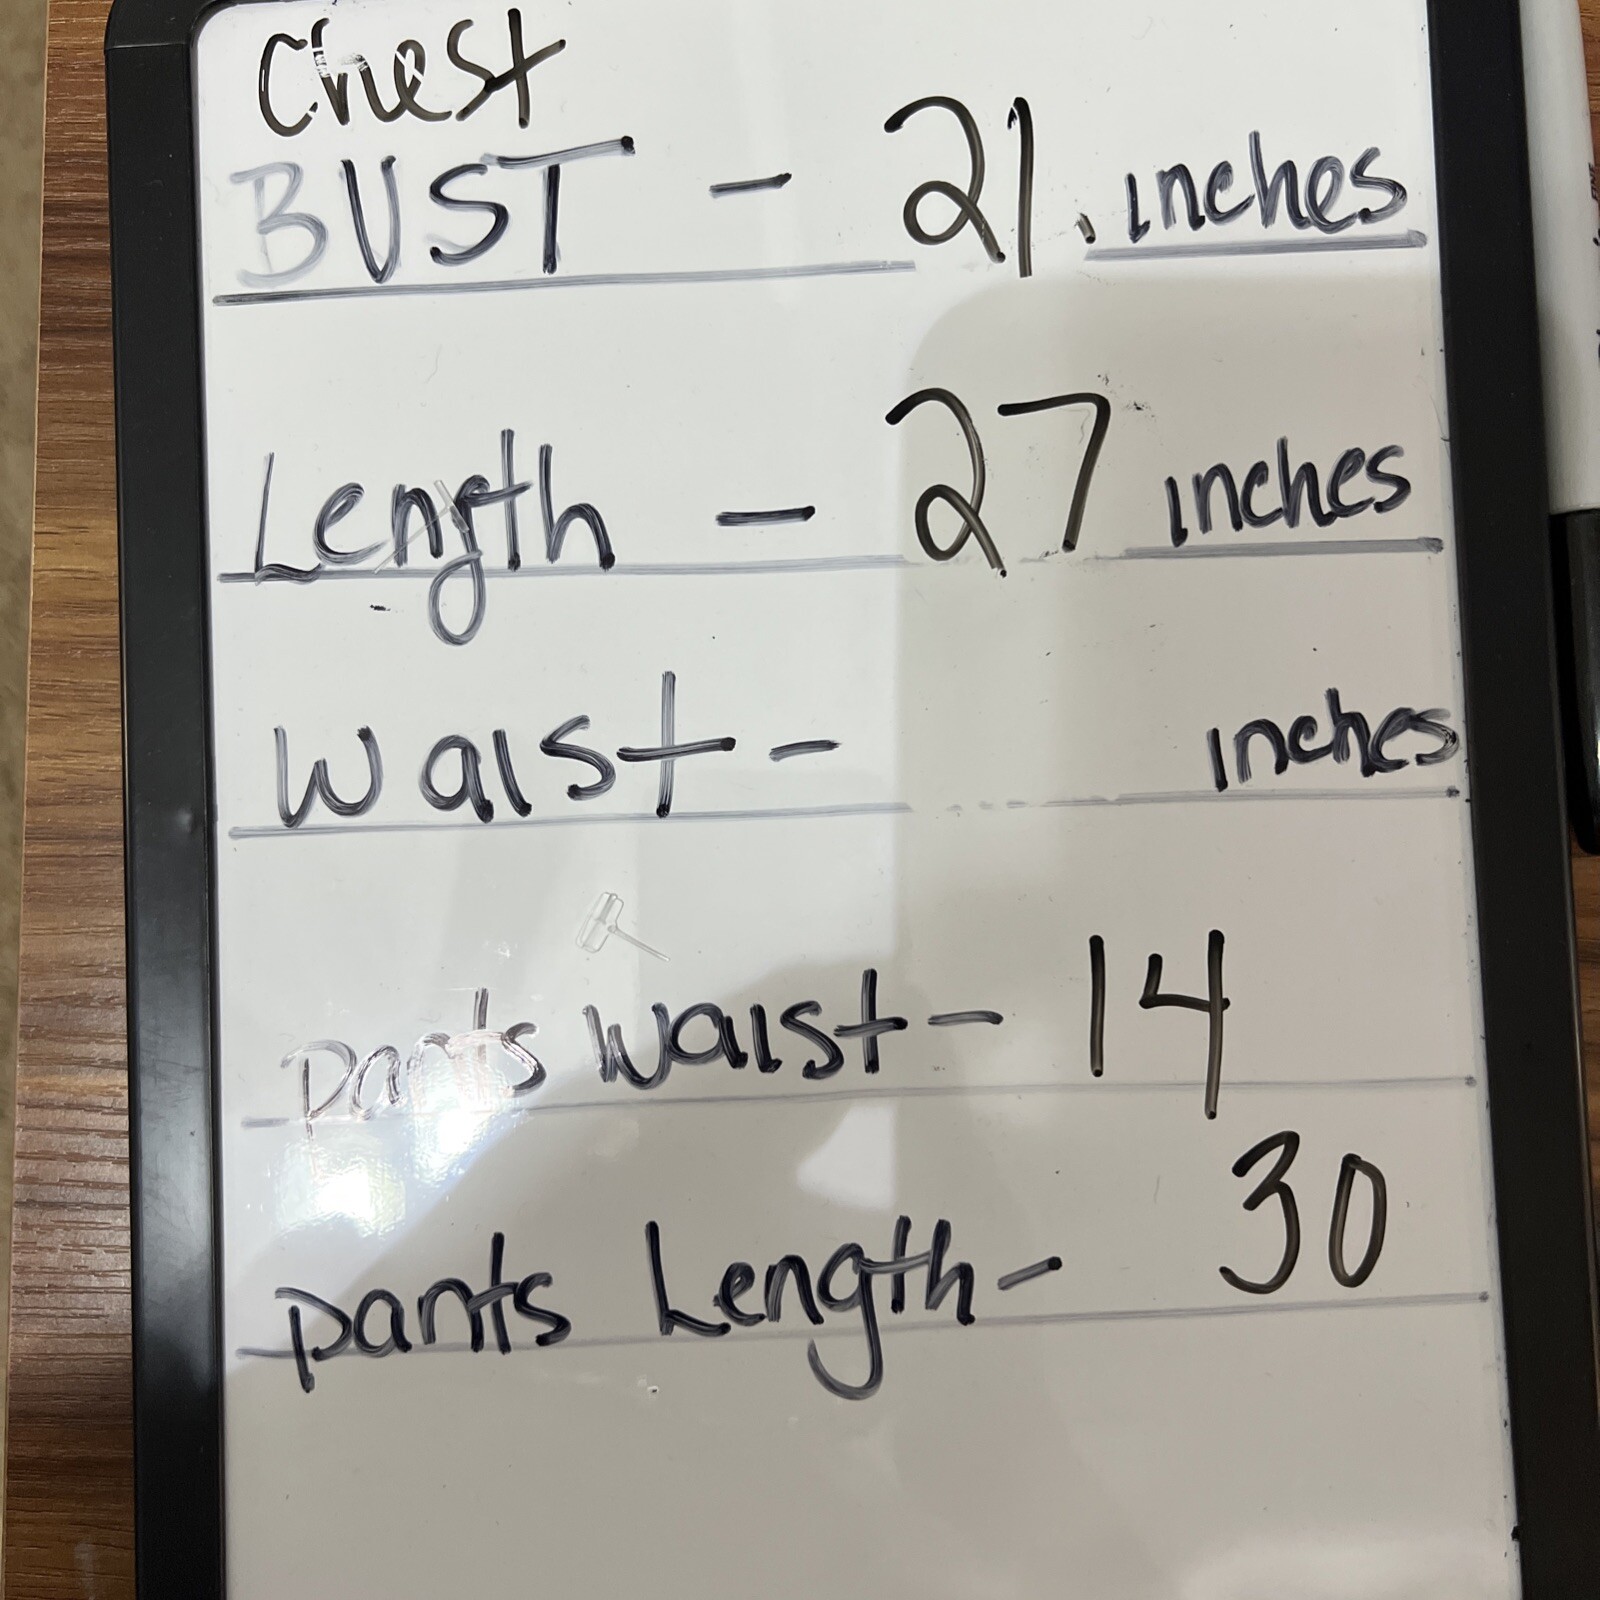 Chest
BUST - 21. inches
Length - 27 inches
Waist - inches
pants waist - 14
30
pants Length -